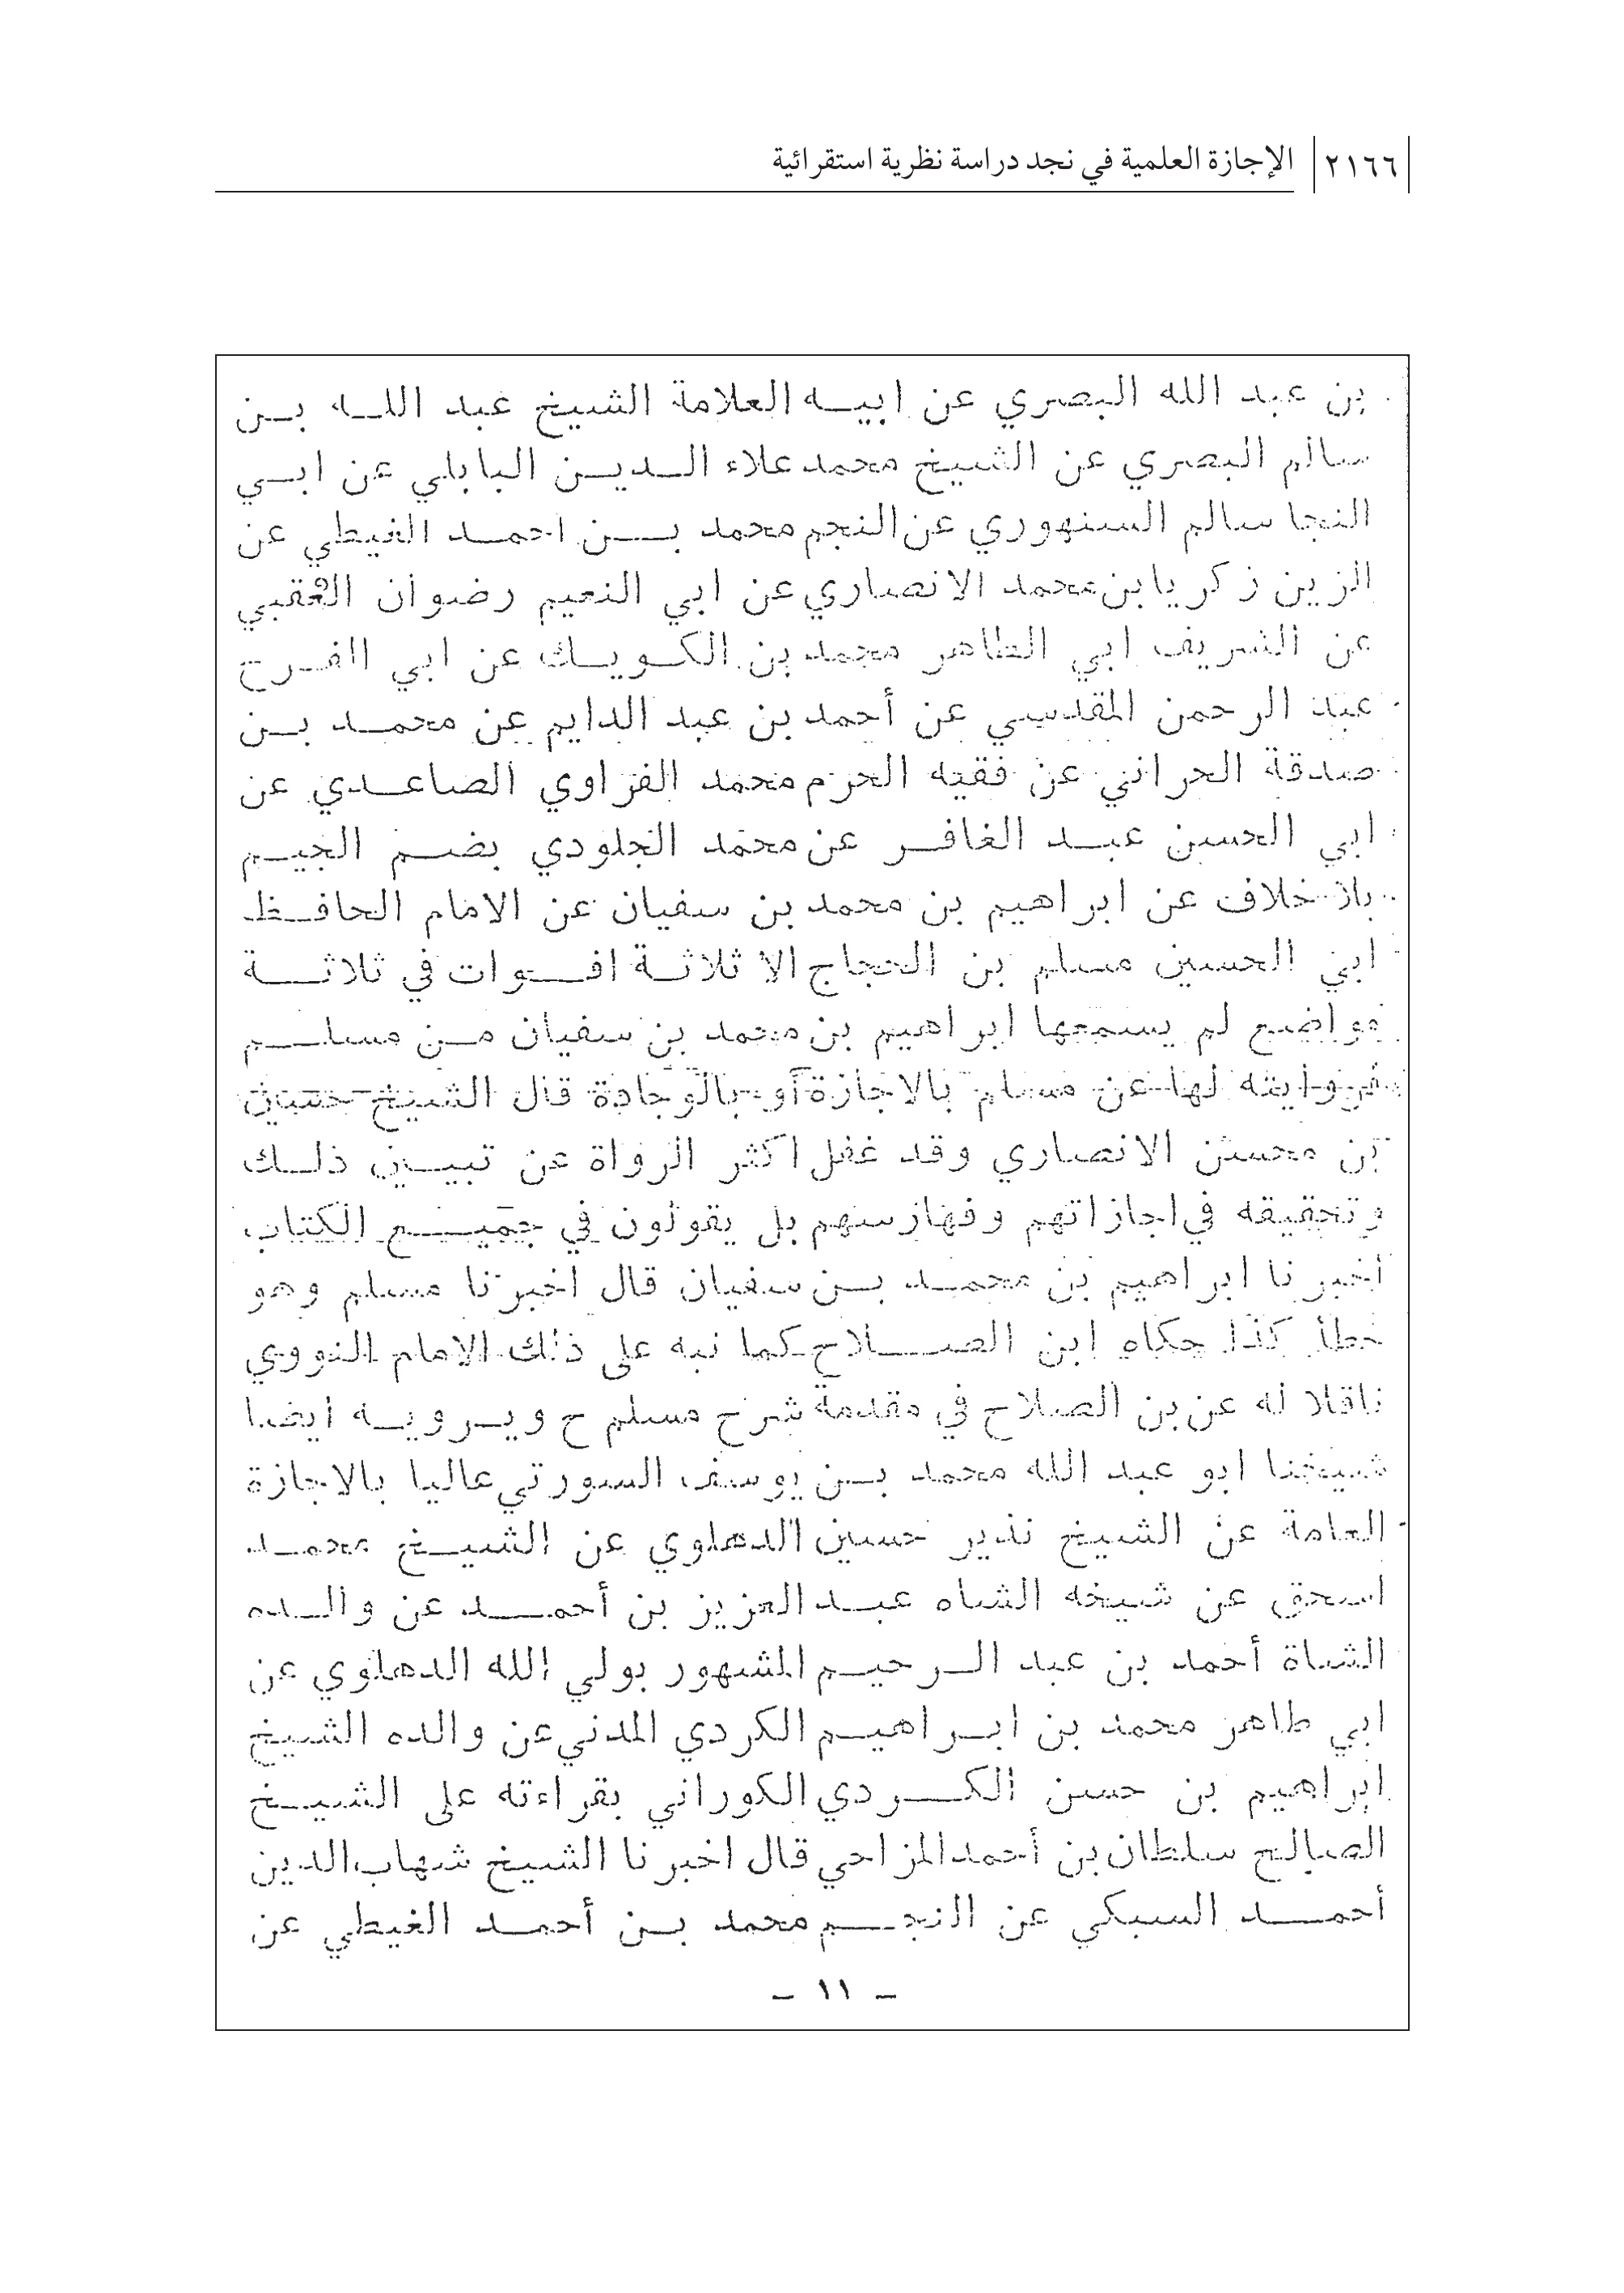 ٢١٦٦ الإجازة العلمية في نجد دراسة نظرية استقرائية
بن عبد الله البصري عن ابيه العلامة الشيخ عبد الله بن
سالم البصري عن الشيخ محمد علاء الدين البابلي عن ابي
النجا سالم السنهوري عن النجم محمد بن احمد الغيطي عن
الزين زكريا بن محمد الانصاري عن ابي النعيم رضوان العقبي
عن الشريف ابي الطاهر محمد بن الكويك عن ابي الفرح
عبد الرحمن المقدسي عن أحمد بن عبد الدايم عن محمد بن
صدقة الحراني عن فقيه الحرم محمد الفراوي الصاعدي عن
ابي الحسين عبد الغافر عن محمد الجلودي بضم الجيم
بلا خلاف عن ابراهيم بن محمد بن سفيان عن الامام الحافظ
ابي الحسين مسلم بن الحجاج الا ثلاثة افوات في ثلاثة
مواضع لم يسمعها ابراهيم بن محمد بن سفيان من مسلم
فروايته لها عن مسلم بالاجازة أو بالوجادة قال الشيخ حسين
بن محسن الانصاري وقد غفل اكثر الرواة عن تبيين ذلك
وتحقيقه في اجازاتهم وفهارسهم بل يقولون في جميع الكتاب
أخبرنا ابراهيم بن محمد بن سفيان قال اخبرنا مسلم وهو
خطأ كذا حكاه ابن الصلاح كما نبه على ذلك الامام النووي
ناقلا له عن بن الصلاح في مقدمة شرح مسلم ح ويرويه ايضا
شيخنا ابو عبد الله محمد بن يوسف السورتي عاليا بالاجازة
العامة عن الشيخ نذير حسين الدهلوي عن الشيخ محمد
اسحق عن شيخه الشاه عبد العزيز بن أحمد عن والده
الشاة أحمد بن عبد الرحيم المشهور بولي الله الدهلوي عن
ابي طاهر محمد بن ابراهيم الكردي المدني عن والده الشيخ
ابراهيم بن حسن الكردي الكوراني بقراءته على الشيخ
الصالح سلطان بن أحمد المزاحي قال اخبرنا الشيخ شهاب الدين
أحمد السبكي عن النجم محمد بن أحمد الغيطي عن
– ١١ –